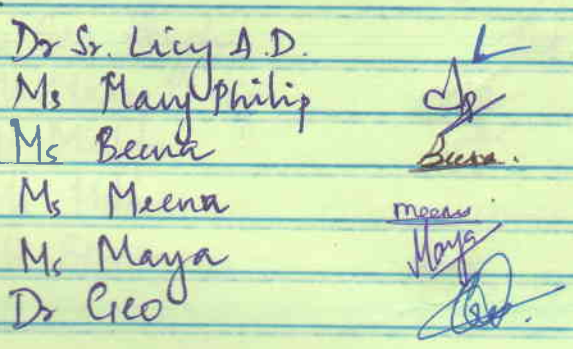 Dr Sr. Licy A.D.
Ms Mary Philip
Ms Beena Beena.
Ms Meena meena
Ms Maya Maya
Dr Geo